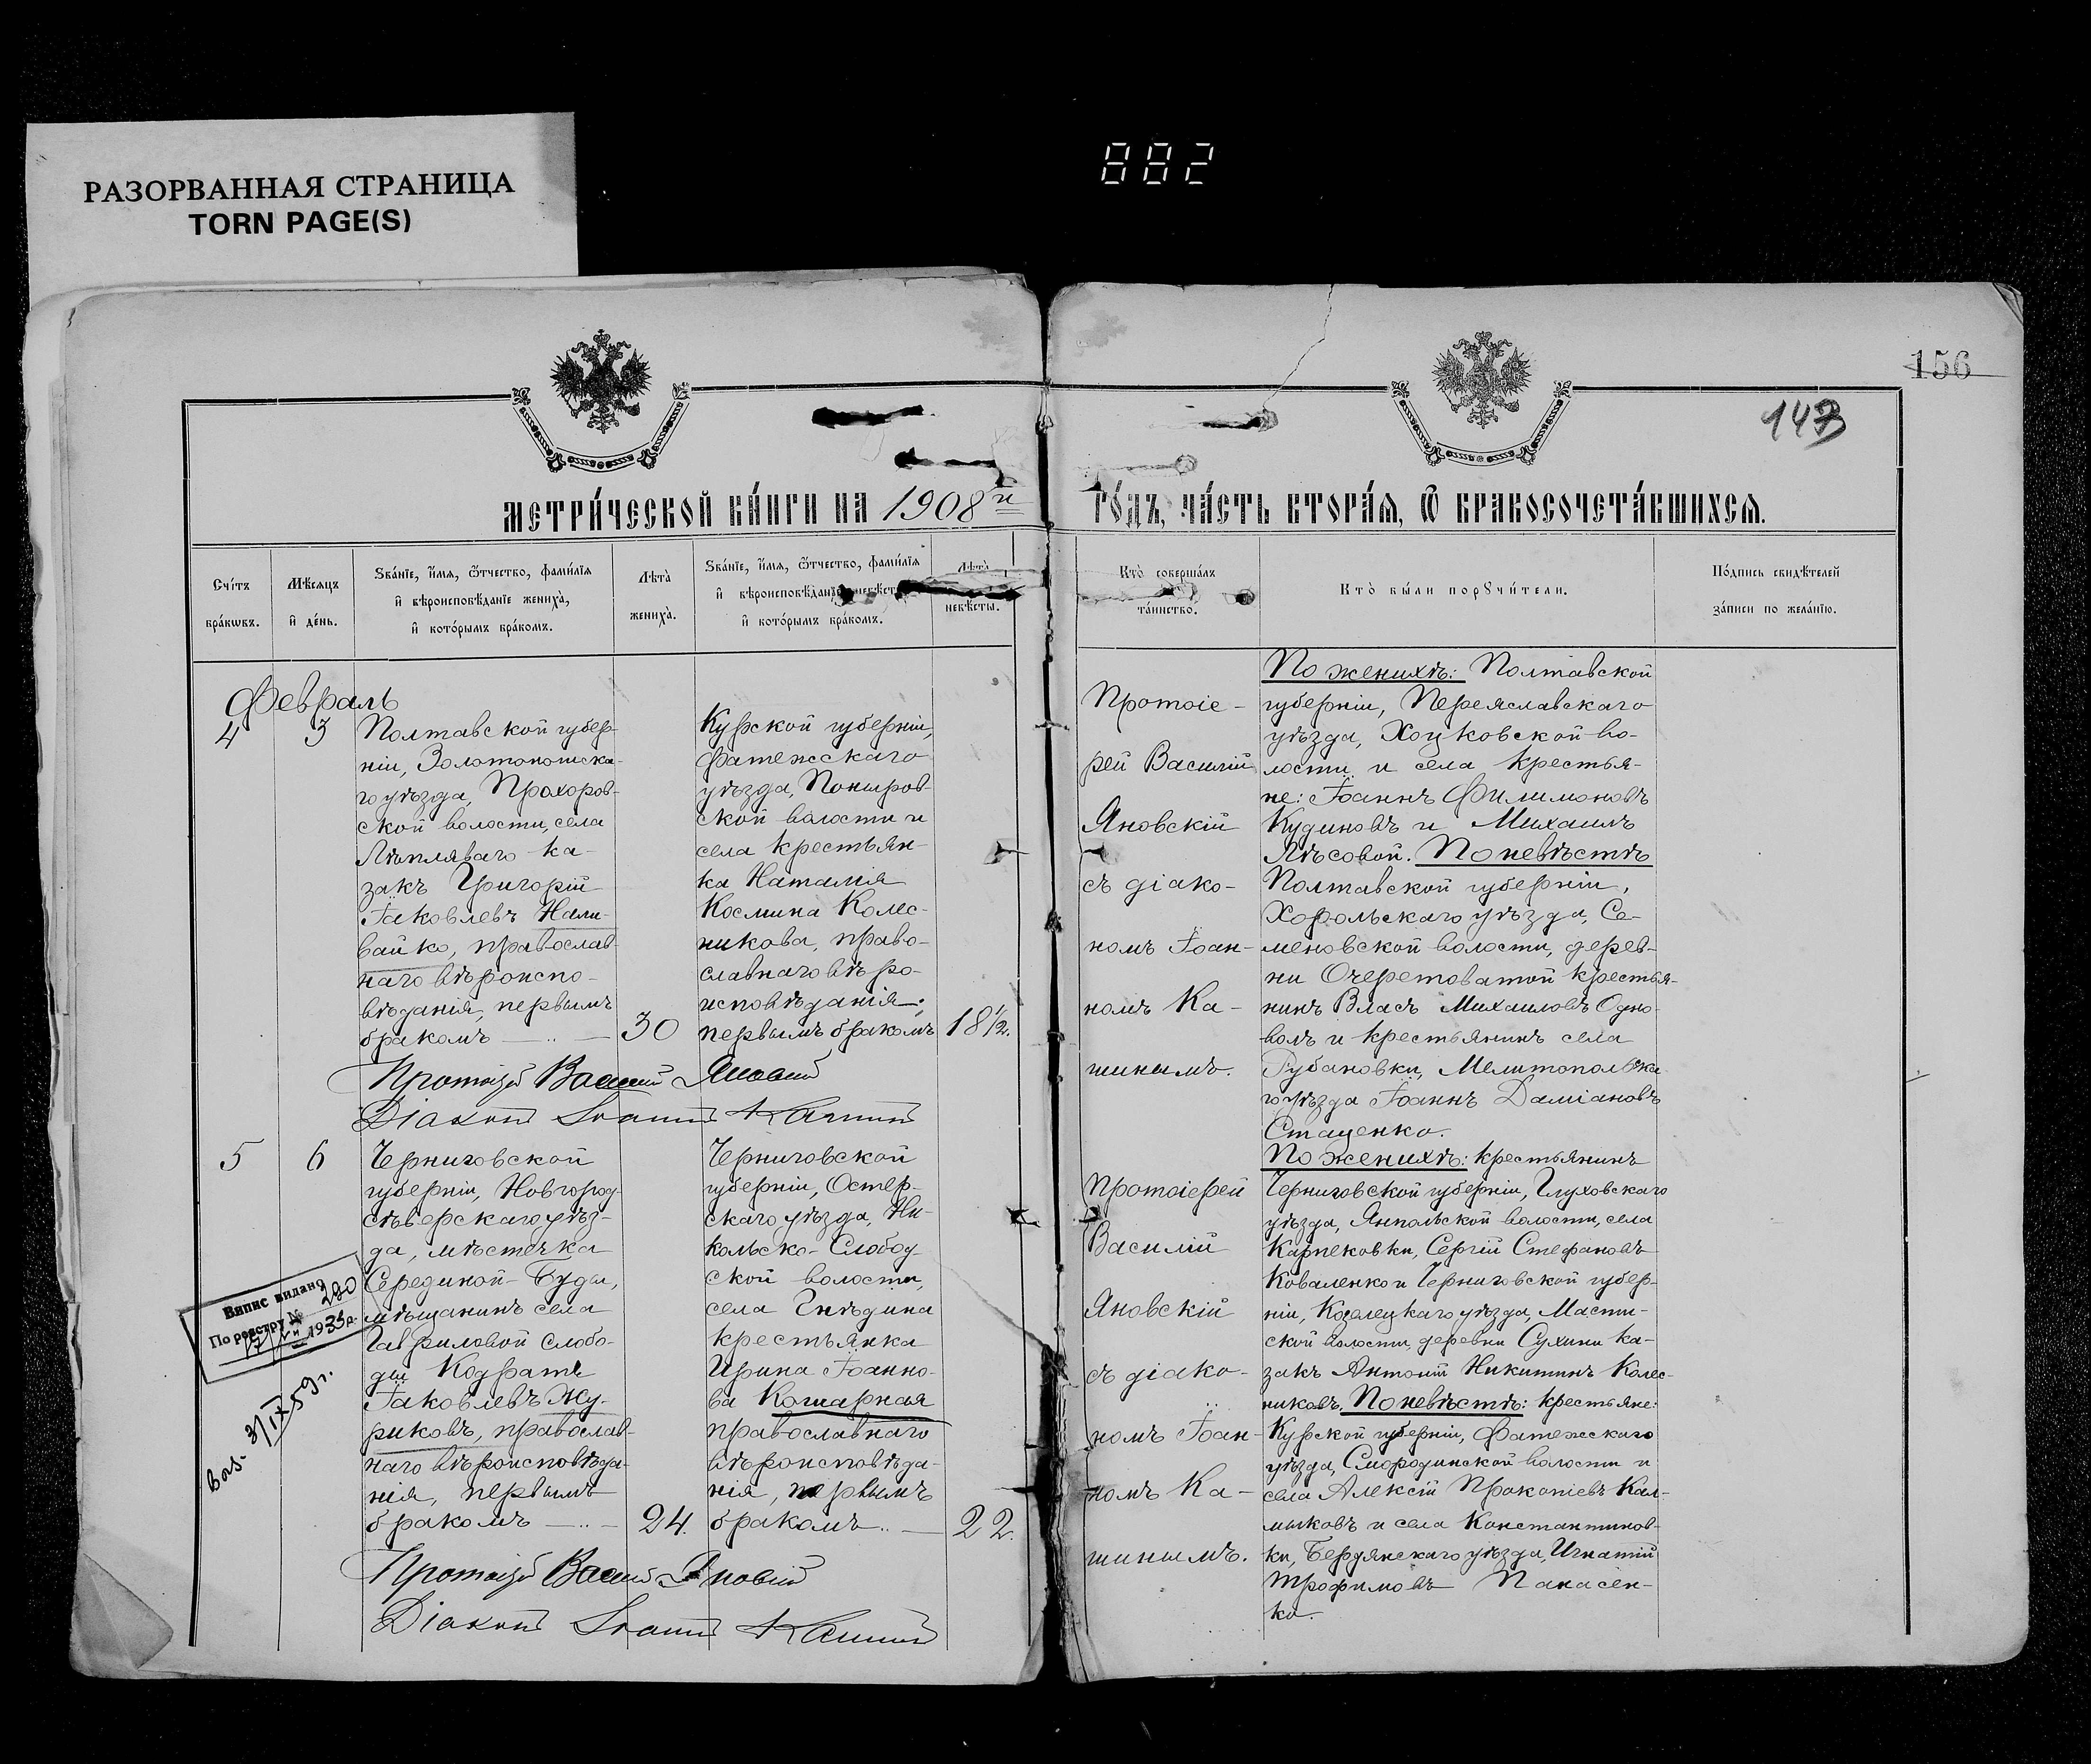 РАЗОРВАННАЯ СТРАНИЦА
TORN PAGE(S)
882
156
147
МЕТРИ́ЧЕСКОЙ КНИ́ГИ НА 1908й
ГО́ДЪ, ЧА́СТЬ ВТОРА́Я, Ѿ БРАКОСОЧЕТА́ВШИХСЯ.
Сче́тъ
бра́кѡвъ.
Мѣ́сяцъ
и҆ де́нь.
Ѕва́нїе, и҆́мя, ѿтчество, фами́лїя
и҆ вѣроисповѣ́данїе жениха̀,
и҆ кото́рымъ бра́комъ.
Лѣта̀
жениха̀.
Ѕва́нїе, и҆́мя, ѿтчество, фами́лїя
и҆ вѣроисповѣ́данїе невѣ́сты,
и҆ кото́рымъ бра́комъ.
Лѣта̀
невѣ́сты.
Кто̀ соверша́лъ
та́инство.
Кто̀ бы́ли порꙋчи́тели.
По́дпись свидѣ́телей
за́писи по жела́нїю.
Февраль
4
3
Полтавской губер-
ніи, Золотоношска-
го уѣзда, Прохоров-
ской волости, села
Лѣпляваго ка-
закъ Григорій
Іаковлевъ Нали-
вайко, православ-
наго вѣроиспо-
вѣданія, первымъ
бракомъ
30
Курской губерніи,
Фатежскаго
уѣзда, Поныров-
ской волости и
села крестьян-
ка Наталия
Космина Колес-
никова, право-
славнаго вѣро-
исповѣданія,
первымъ бракомъ
18 1/2.
Протоіерей Василій Яновскій
Діаконъ Іоаннъ Кашинъ
Протоіе-
рей Василій
Яновскій
съ діако-
номъ Іоан-
номъ Ка-
шинымъ.
По женихѣ: Полтавской
губерніи, Переяславскаго
уѣзда, Хоцковской во-
лости и села крестья-
не: Іоаннъ Филимоновъ
Кудиновъ и Михаилъ
Лѣсовой. По невѣстѣ
Полтавской губерніи,
Хорольскаго уѣзда, Се-
меновской волости, дерев-
ни Очеретоватой крестья-
нинъ Власъ Михаиловъ Одно-
волъ и крестьянинъ села
Рубановки, Мелитопольска-
го уѣзда Іоаннъ Даміановъ
Стаценко.
5
6
Черниговской
губерніи, Новгород-
сѣверскаго уѣз-
да, мѣстечка
Середина-Буда,
мѣщанинъ села
Гавриловой Слобо-
ды Кодратъ
Іаковлевъ Жу-
риковъ, православ-
наго вѣроисповѣда-
нія, первымъ
бракомъ
24.
Черниговской
губерніи, Остер-
скаго уѣзда, Ни-
кольско-Слобод-
ской волости,
села Гнѣдина
крестьянка
Ирина Іоанно-
ва Кошарная
православнаго
вѣроисповѣда-
нія, первымъ
бракомъ
22.
Протоіерей Василій Яновскій
Діаконъ Іоаннъ Кашинъ
Протоіерей
Василій
Яновскій
съ діако-
номъ Іоан-
номъ Ка-
шинымъ.
По женихѣ: крестьянинъ
Черниговской губерніи, Глуховскаго
уѣзда, Янпольской волости, села
Карпековки, Сергій Стефановъ
Коваленко и Черниговской губер-
ніи, Козелецкаго уѣзда, Масти-
ской волости, деревни Сухини ка-
закъ Антоній Никитинъ Колес-
никовъ. По невѣстѣ: крестьяне:
Курской губерніи, Фатежскаго
уѣзда, Смородинской волости и
села Алексій Прокопіевъ Кал-
мыковъ и села Константинов-
ки, Бердянскаго уѣзда, Игнатій
Трофимовъ Панасен-
ко.
Випис видано
По реєстру № 280
1935р.
3/IX 59г.